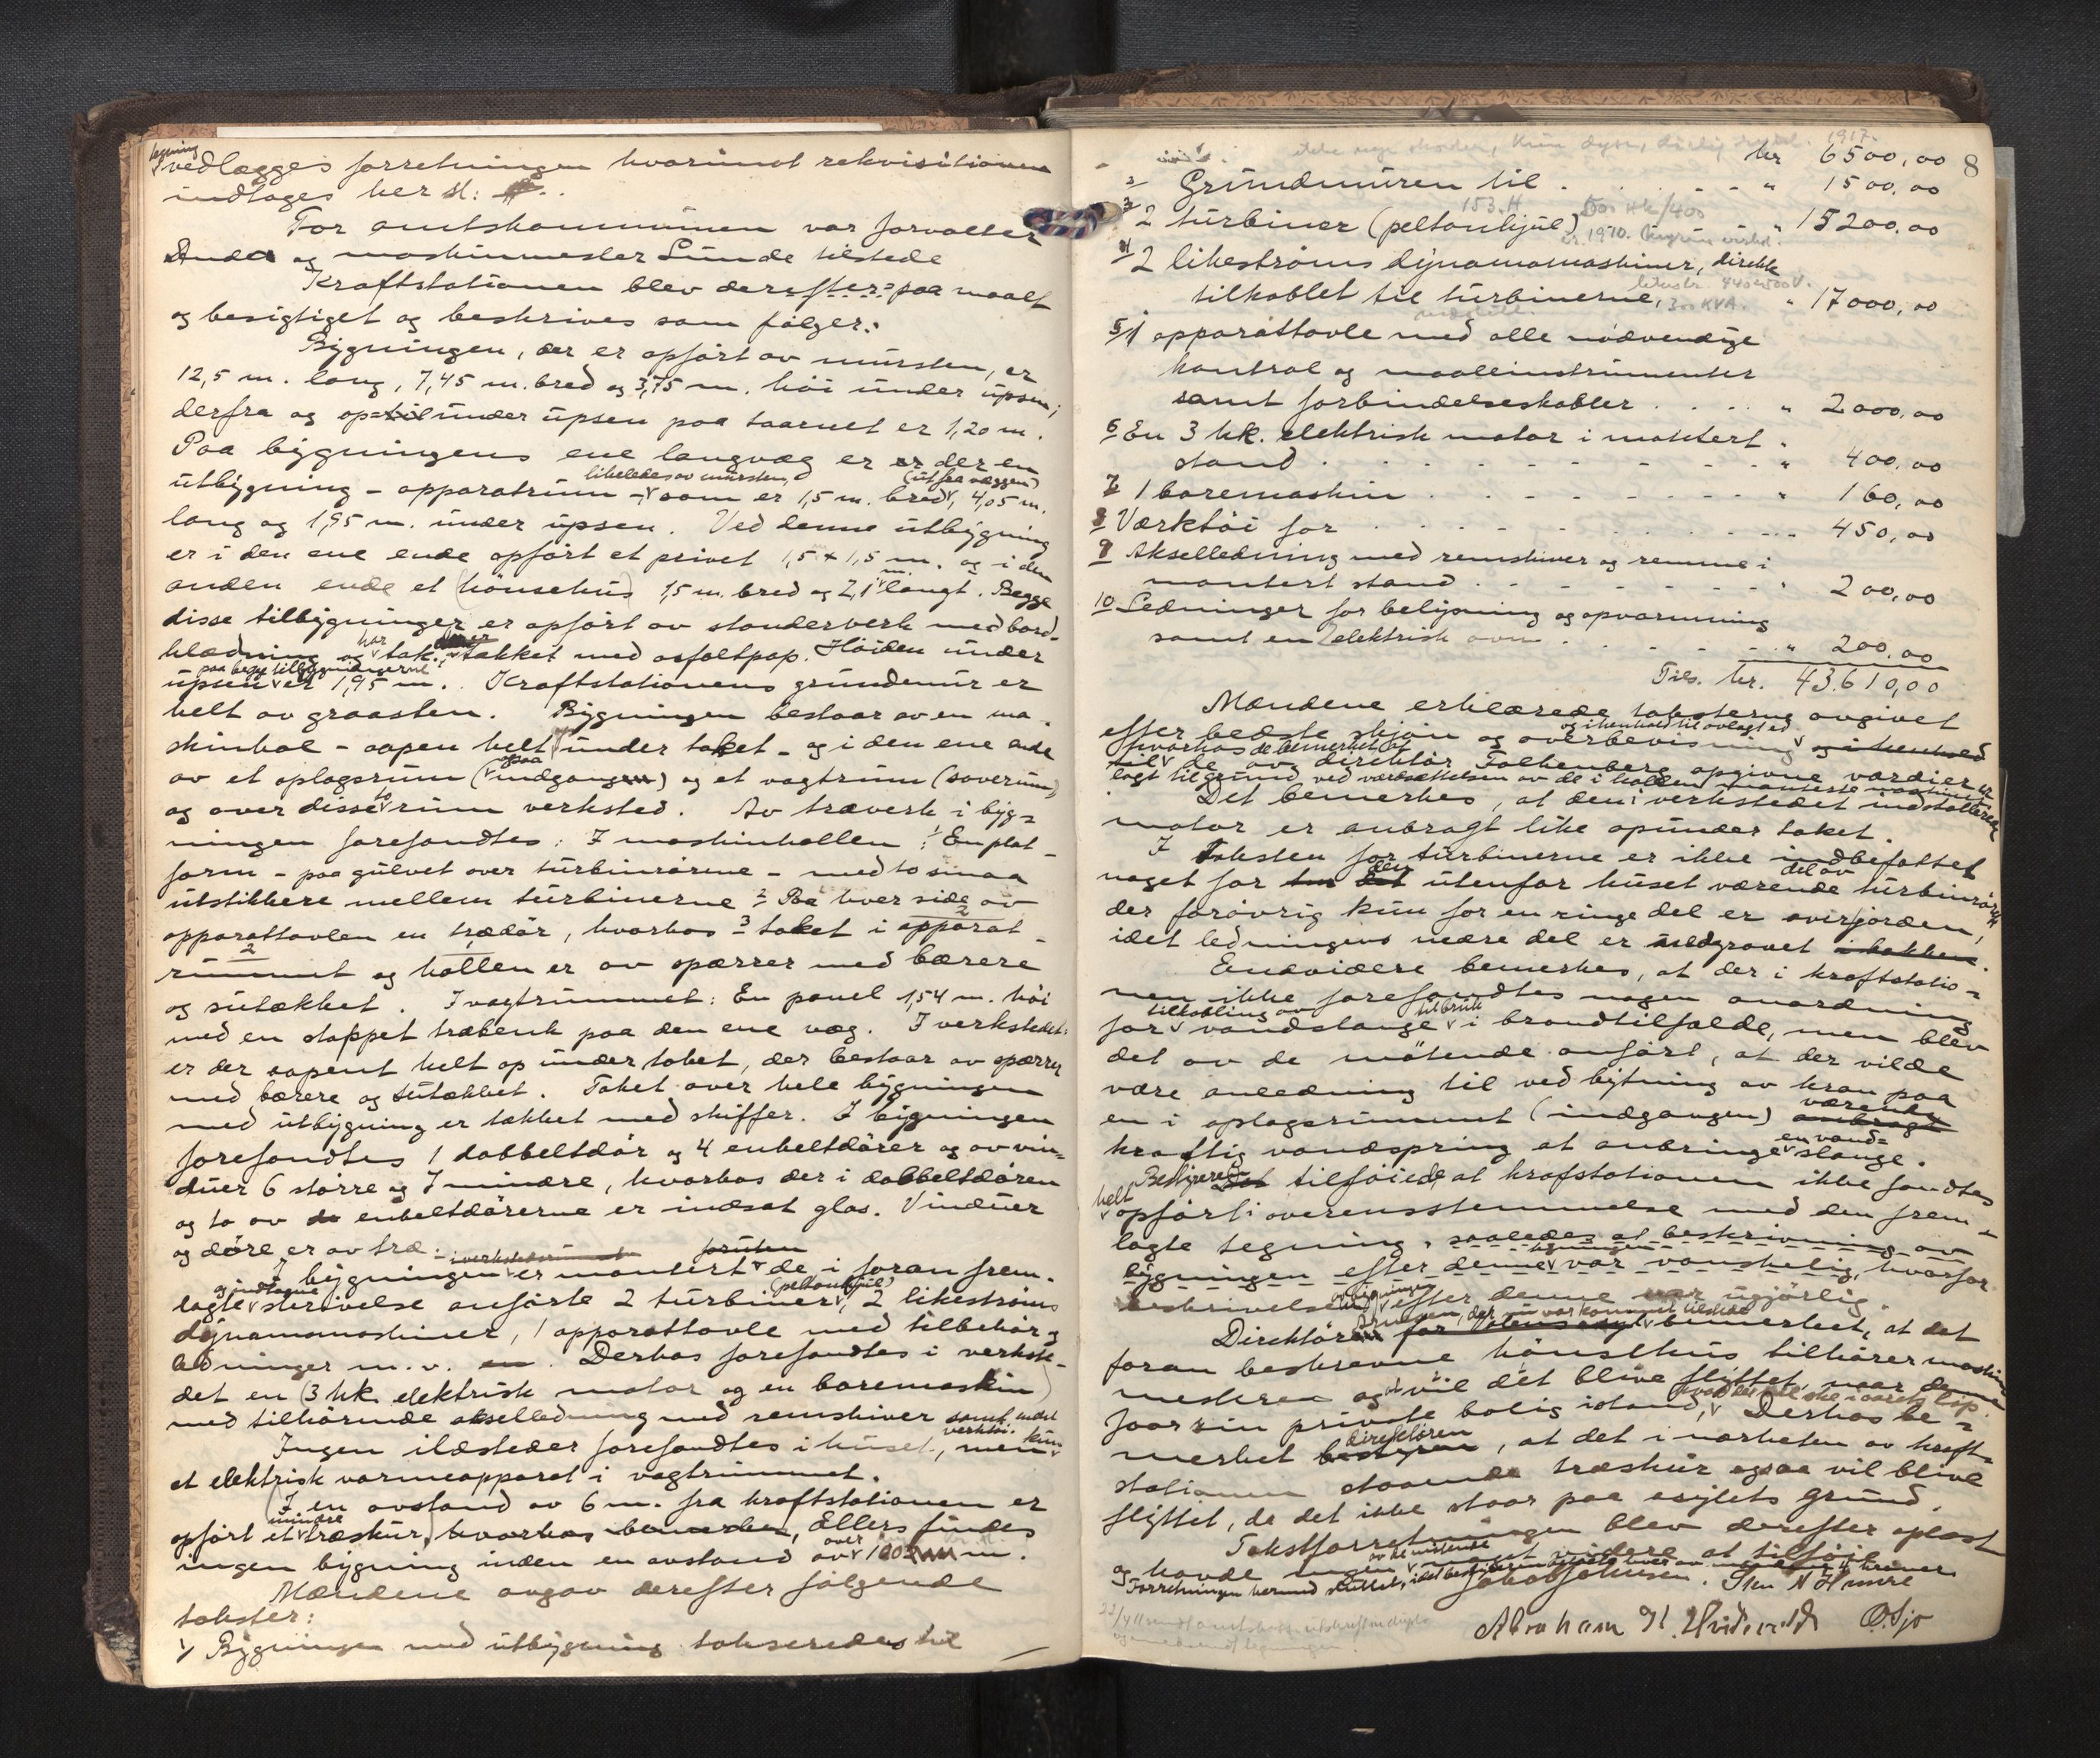 tegning
vedlægges forretningen hvorimot rekvisitionen
indtages her sl:
For amtskommunen var forvalter
og maskinmester Lunde tilstede
Kraftstationen blev derefter paa maalt
og besigtiget og beskrives som følger:
Bygningen, der er opført av mursten, er
12,5 m. lang, 7,45 m. bred og 3,75 m. höi under upsen;
derfra og op til under upsen paa taarnet er 1,20 m.
Paa bygningens ene langvæg er er der en
likeledes av mursten (ut fra væggen)
utbygning - apparatrum - som er 1,5 m. bred, 4,05 m.
lang og 1,95 m. under upsen. Ved denne utbygning
er i den ene ende opført et privet 1,5 x 1,5 m. og i den
anden ende et (hönsehus) 1,5 m. bred og 2,1 m. langt. Begge
disse tilbygninger er opført av stenderverk med bord-
klædning og har tak, tækket med asfaltpap. Höiden under
paa begge tilbygningerne
upsen er 1,95 m. Kraftstationens grundmur er
helt av graasten. Bygningen bestaar av en ma-
skinhal - aapen helt under taket - og i den ene ende
ogsaa
av et oplagsrum (indgangen) og et vagtrum (soverum)
og over disse to rum verksted. Av træverk i byg-
ningen forefandtes: I maskinhallen: 1 En plat-
form - paa gulvet over turbinrörene - med to smaa
utstikkere mellem turbinerne 2 Paa hver side av
apparattavlen en trædör, hvorhos 3 taket i apparat-
rummet og hallen er av spærrer med bærere
og sutækket. I vagtrummet: En panel 1,54 m. höi
med en stoppet træbenk paa den ene væg. I verkstedet
er der aapent helt op under taket, der bestaar av spærrer
med bærere og sutækket. Taket over hele bygningen
med utbygning er tækket med skiffer. I bygningen
forefandtes 1 dobbeltdör og 4 enkeltdörer og av vin-
duer 6 större og 7 mindre, hvorhos der i dobbeltdören
og to av de enkeltdörerne er indsat glas. Vinduer
og döre er av træ.
i verkstedsrummet foruten
I bygningen er montert de i foran frem-
og indtagne (peltonhjul)
lagte skrivelse anförte 2 turbiner, 2 likeströms
dynamomaskiner, 1 apparattavle med tilbehör og
ledninger m. v. Derhos forefandtes i verkste-
det en (3 hk. elektrisk motor og en boremaskin)
med tilhörende akselledning med remskiver samt andet
verktöi.
Ingen ildsteder forefandtes i huset, men kun
et elektrisk varmeapparat i vagtrummet.
I en avstand av 6 m. fra kraftstationen er
mindre
opført et træskur, hvorhos bemerkes, Ellers findes
ingen bygning inden en avstand av over 100 m.
Mændene avgav derefter følgende
takster:
1/ Bygningen med utbygning takseredes til
8
1917.
kr 6500,00
2/ Grundmuren til . . . " 1500,00
153. H 500 Hk/400
3/ 2 turbiner (peltonhjul) " 15200,00
4/ 2 likeströms dynamomaskiner, direkte
tilkoblet til turbinerne, " 17000,00
300 KVA.
5/ 1 apparattavle med alle nödvendige
kontrol og maaleinstrumenter
samt forbindelseskabler . . . " 2000,00
6 En 3 hk. elektrisk motor i montert
stand . . . " 400,00
7 1 boremaskin . . . " 160,00
8 Værktöi for . . . 450,00
9 Akselledning med remskiver og remme i
montert stand . . . " 200,00
10 Ledninger for belysning og opvarmning
samt en elektrisk ovn . . . " 200,00
Tils. kr. 43.610,00
Mændene erklærede taksterne avgivet
efter bedste skjön og overbevisning og i henhold
til de av direktör Falkenberg opgivne værdier
lagt til grund ved værdsættelsen av de i
Det bemerkes, at den i verkstedet installerede
motor er anbragt like opunder taket.
I Taksten for turbinerne er ikke indbefattet
noget for den utenfor huset værende del av turbinrör
der forövrig kun for en ringe del er over jorden,
idet ledningens mere del er nedgravet i bakken.
Endvidere bemerkes, at der i kraftstatio-
nen ikke forefandtes nogen anordning
tilkobling av til bruk
for vandslange i brandtilfælde, men blev
det av de mötende anført, at der vilde
være anledning til ved bytning av kran paa
en i oplagsrummet (indgangen) værende
kraftig vandspring at anbringe en vand-
slange.
Bestyreren tilföiede, at krafstationen ikke fandtes
helt
opført i overensstemmelse med den frem-
lagte tegning, saaledes at beskrivning av
bygningen efter denne var vanskelig, hvorfor
beskrivelsen efter denne ugjörlig.
Direktören bemerket, at det
foran beskrevne hönsehus tilhörer maskin-
mesteren og at vil det blive flyttet, naar denne
faar sin private bolig istand, hvad der vil ske i aarets löp.
Derhos be-
merket direktören, at det i nærheten av kraft-
stationen staaende træskur ogsaa vil blive
flyttet, da det ikke staar paa asylets grund.
Takstforretningen blev derefter oplæst
og havde ingen av de mötende noget videre at tilföie.
Forretningen hermed sluttet,
Jakob Johnsen. Sten N Hunre
Abraham H. O. Sjo